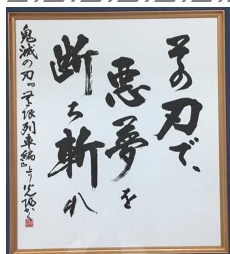 その刃で、
悪夢を
断ち斬れ
鬼滅の刃『無限列車編』より